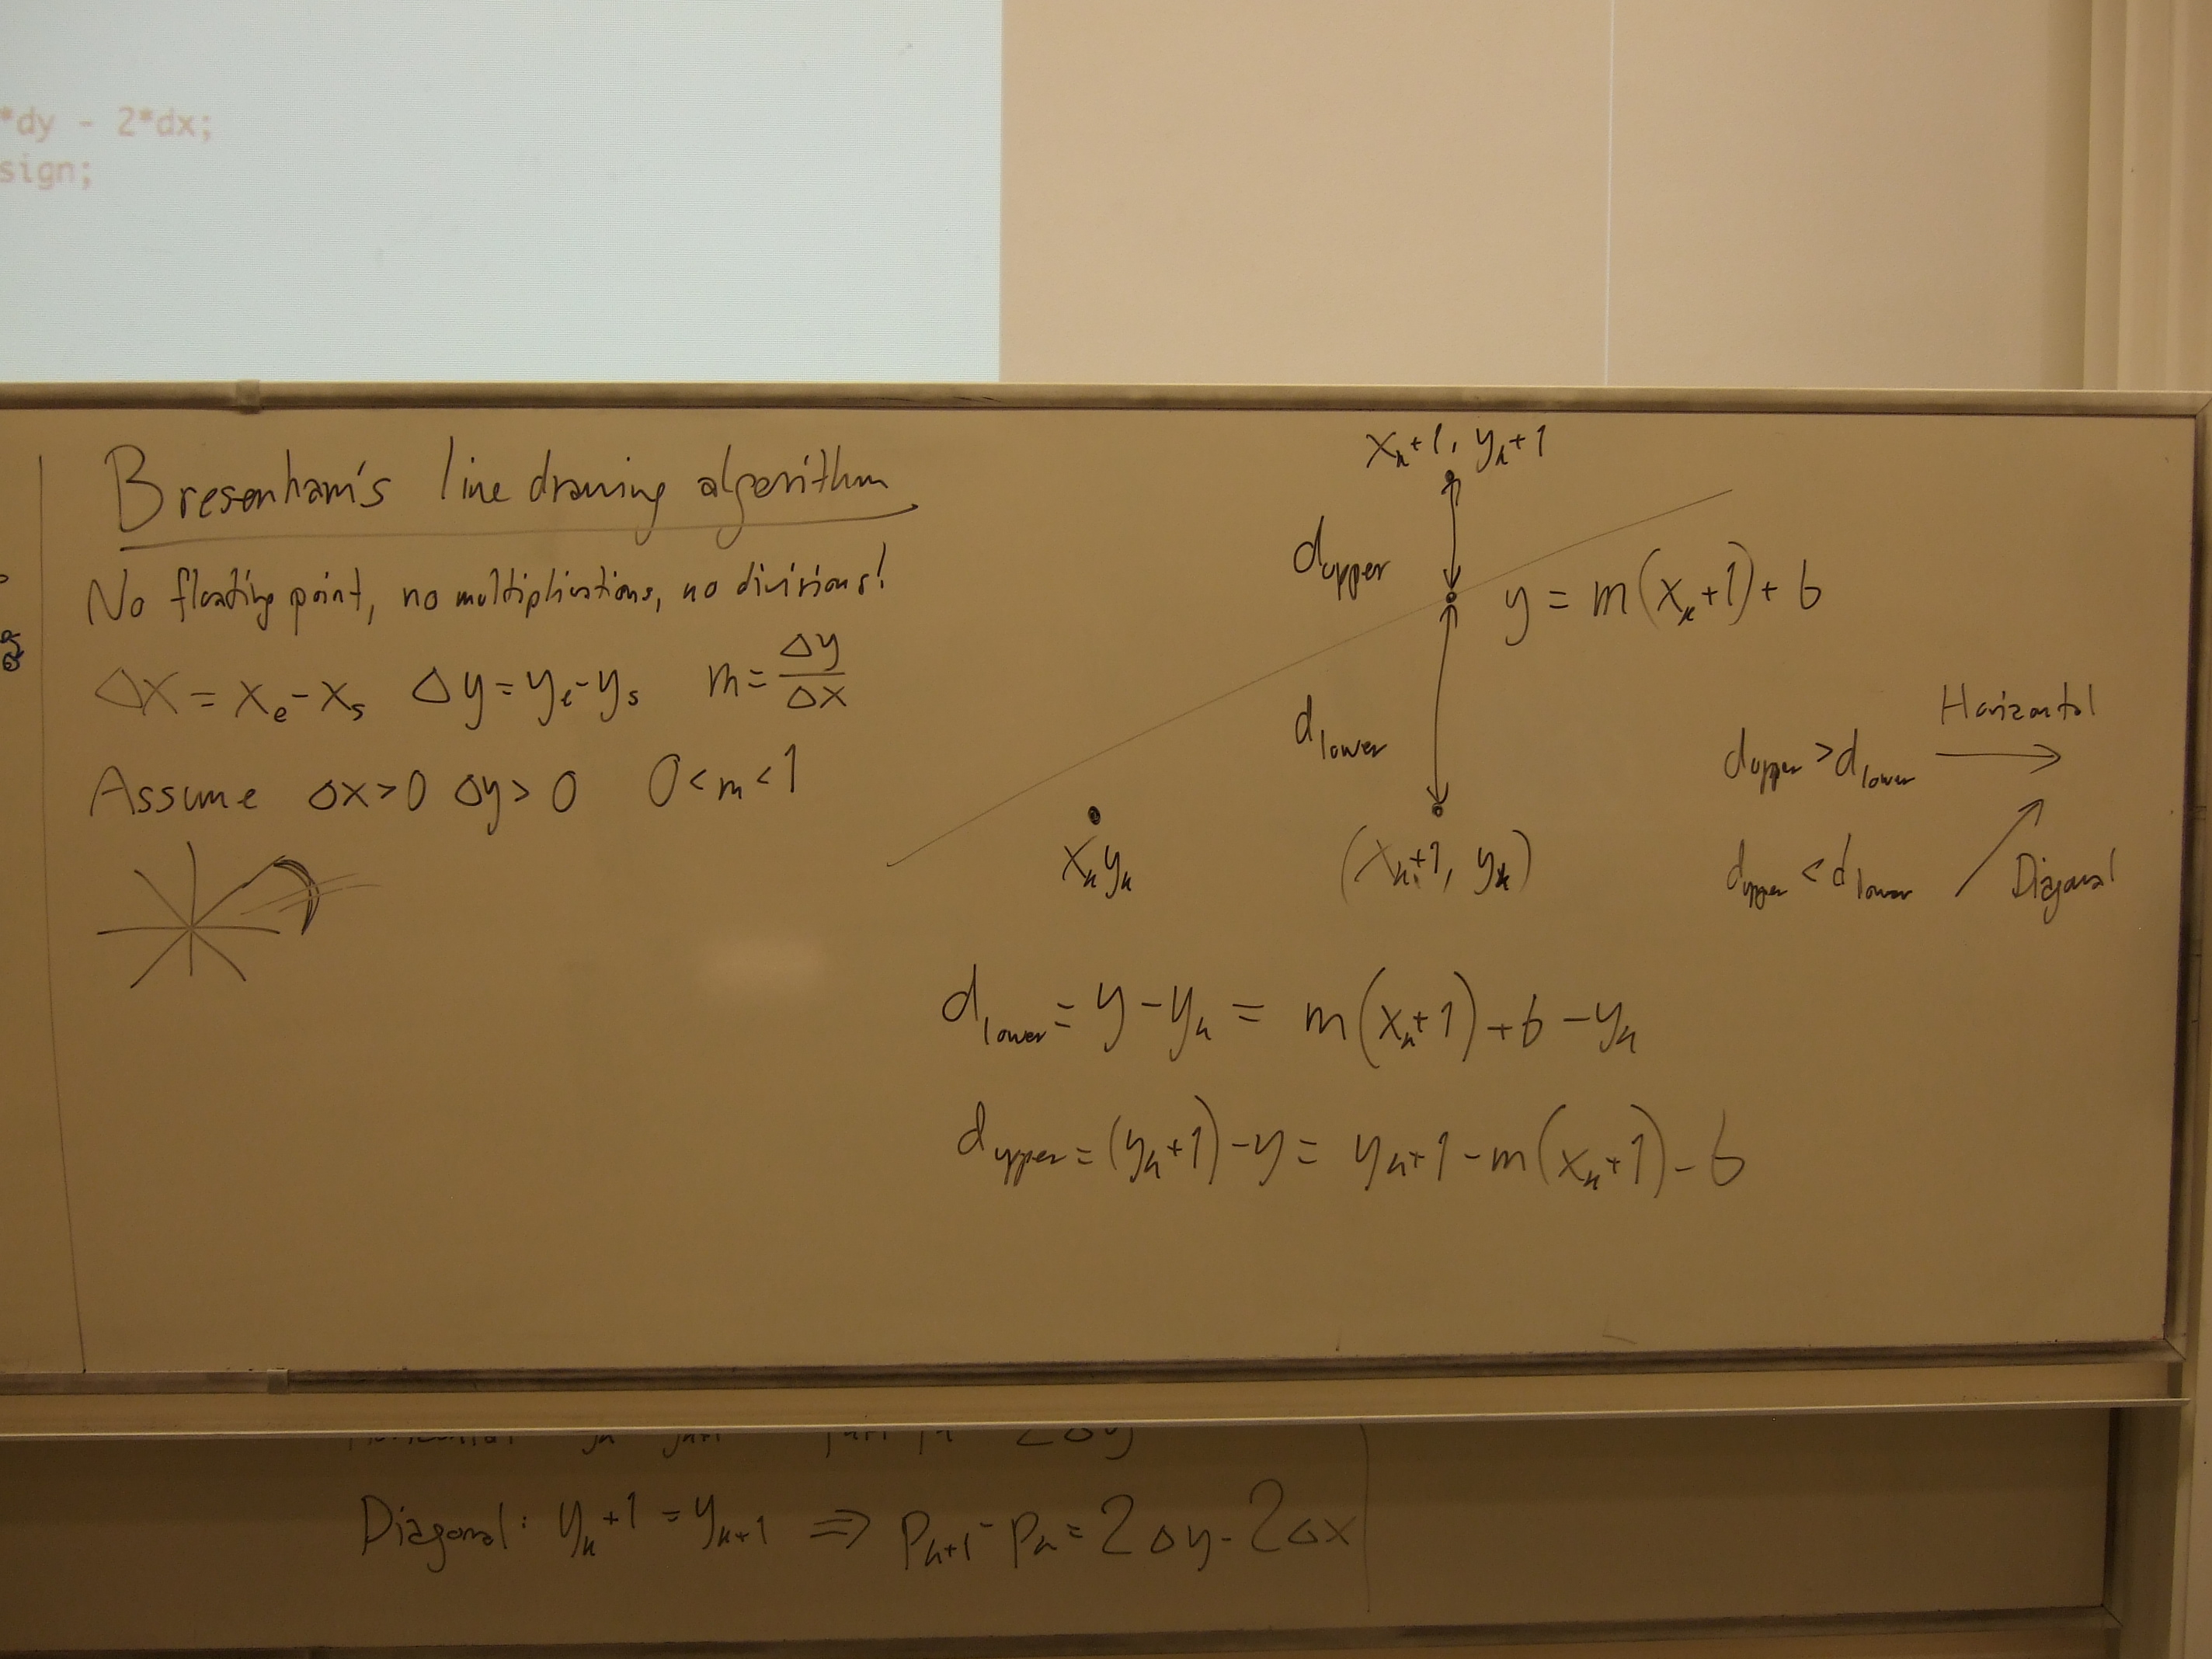 *dy - 2*dx;
sign;
Bresenham's line drawing algorithm
No floating point, no multiplications, no divisions!
Δx = xₑ - xₛ Δy = yₑ - yₛ m = Δy/Δx
Assume Δx > 0 Δy > 0 0 < m < 1
xₖ+1, yₖ+1
d_upper
y = m(xₖ+1) + b
d_lower
xₖ yₖ
(xₖ+1, yₖ)
Horizontal
d_upper > d_lower
d_upper < d_lower
Diagonal
d_lower = y - yₖ = m(xₖ+1) + b - yₖ
d_upper = (yₖ+1) - y = yₖ+1 - m(xₖ+1) - b
Diagonal: yₖ+1 = yₖ₊₁ ⇒ pₖ₊₁ - pₖ = 2Δy - 2Δx